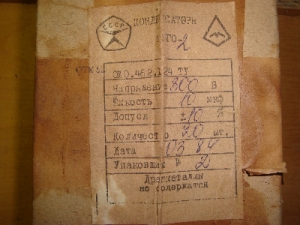 СССР
КОНДЕНСАТОРЫ
МБГО-2
ОЖО.462.124 ТУ
Напряжение 300 В
Емкость 10 мкф
Допуск ±10 %
Количество 30 шт.
Дата 03 84
Упаковщик № 2
Драгметаллы
не содержатся